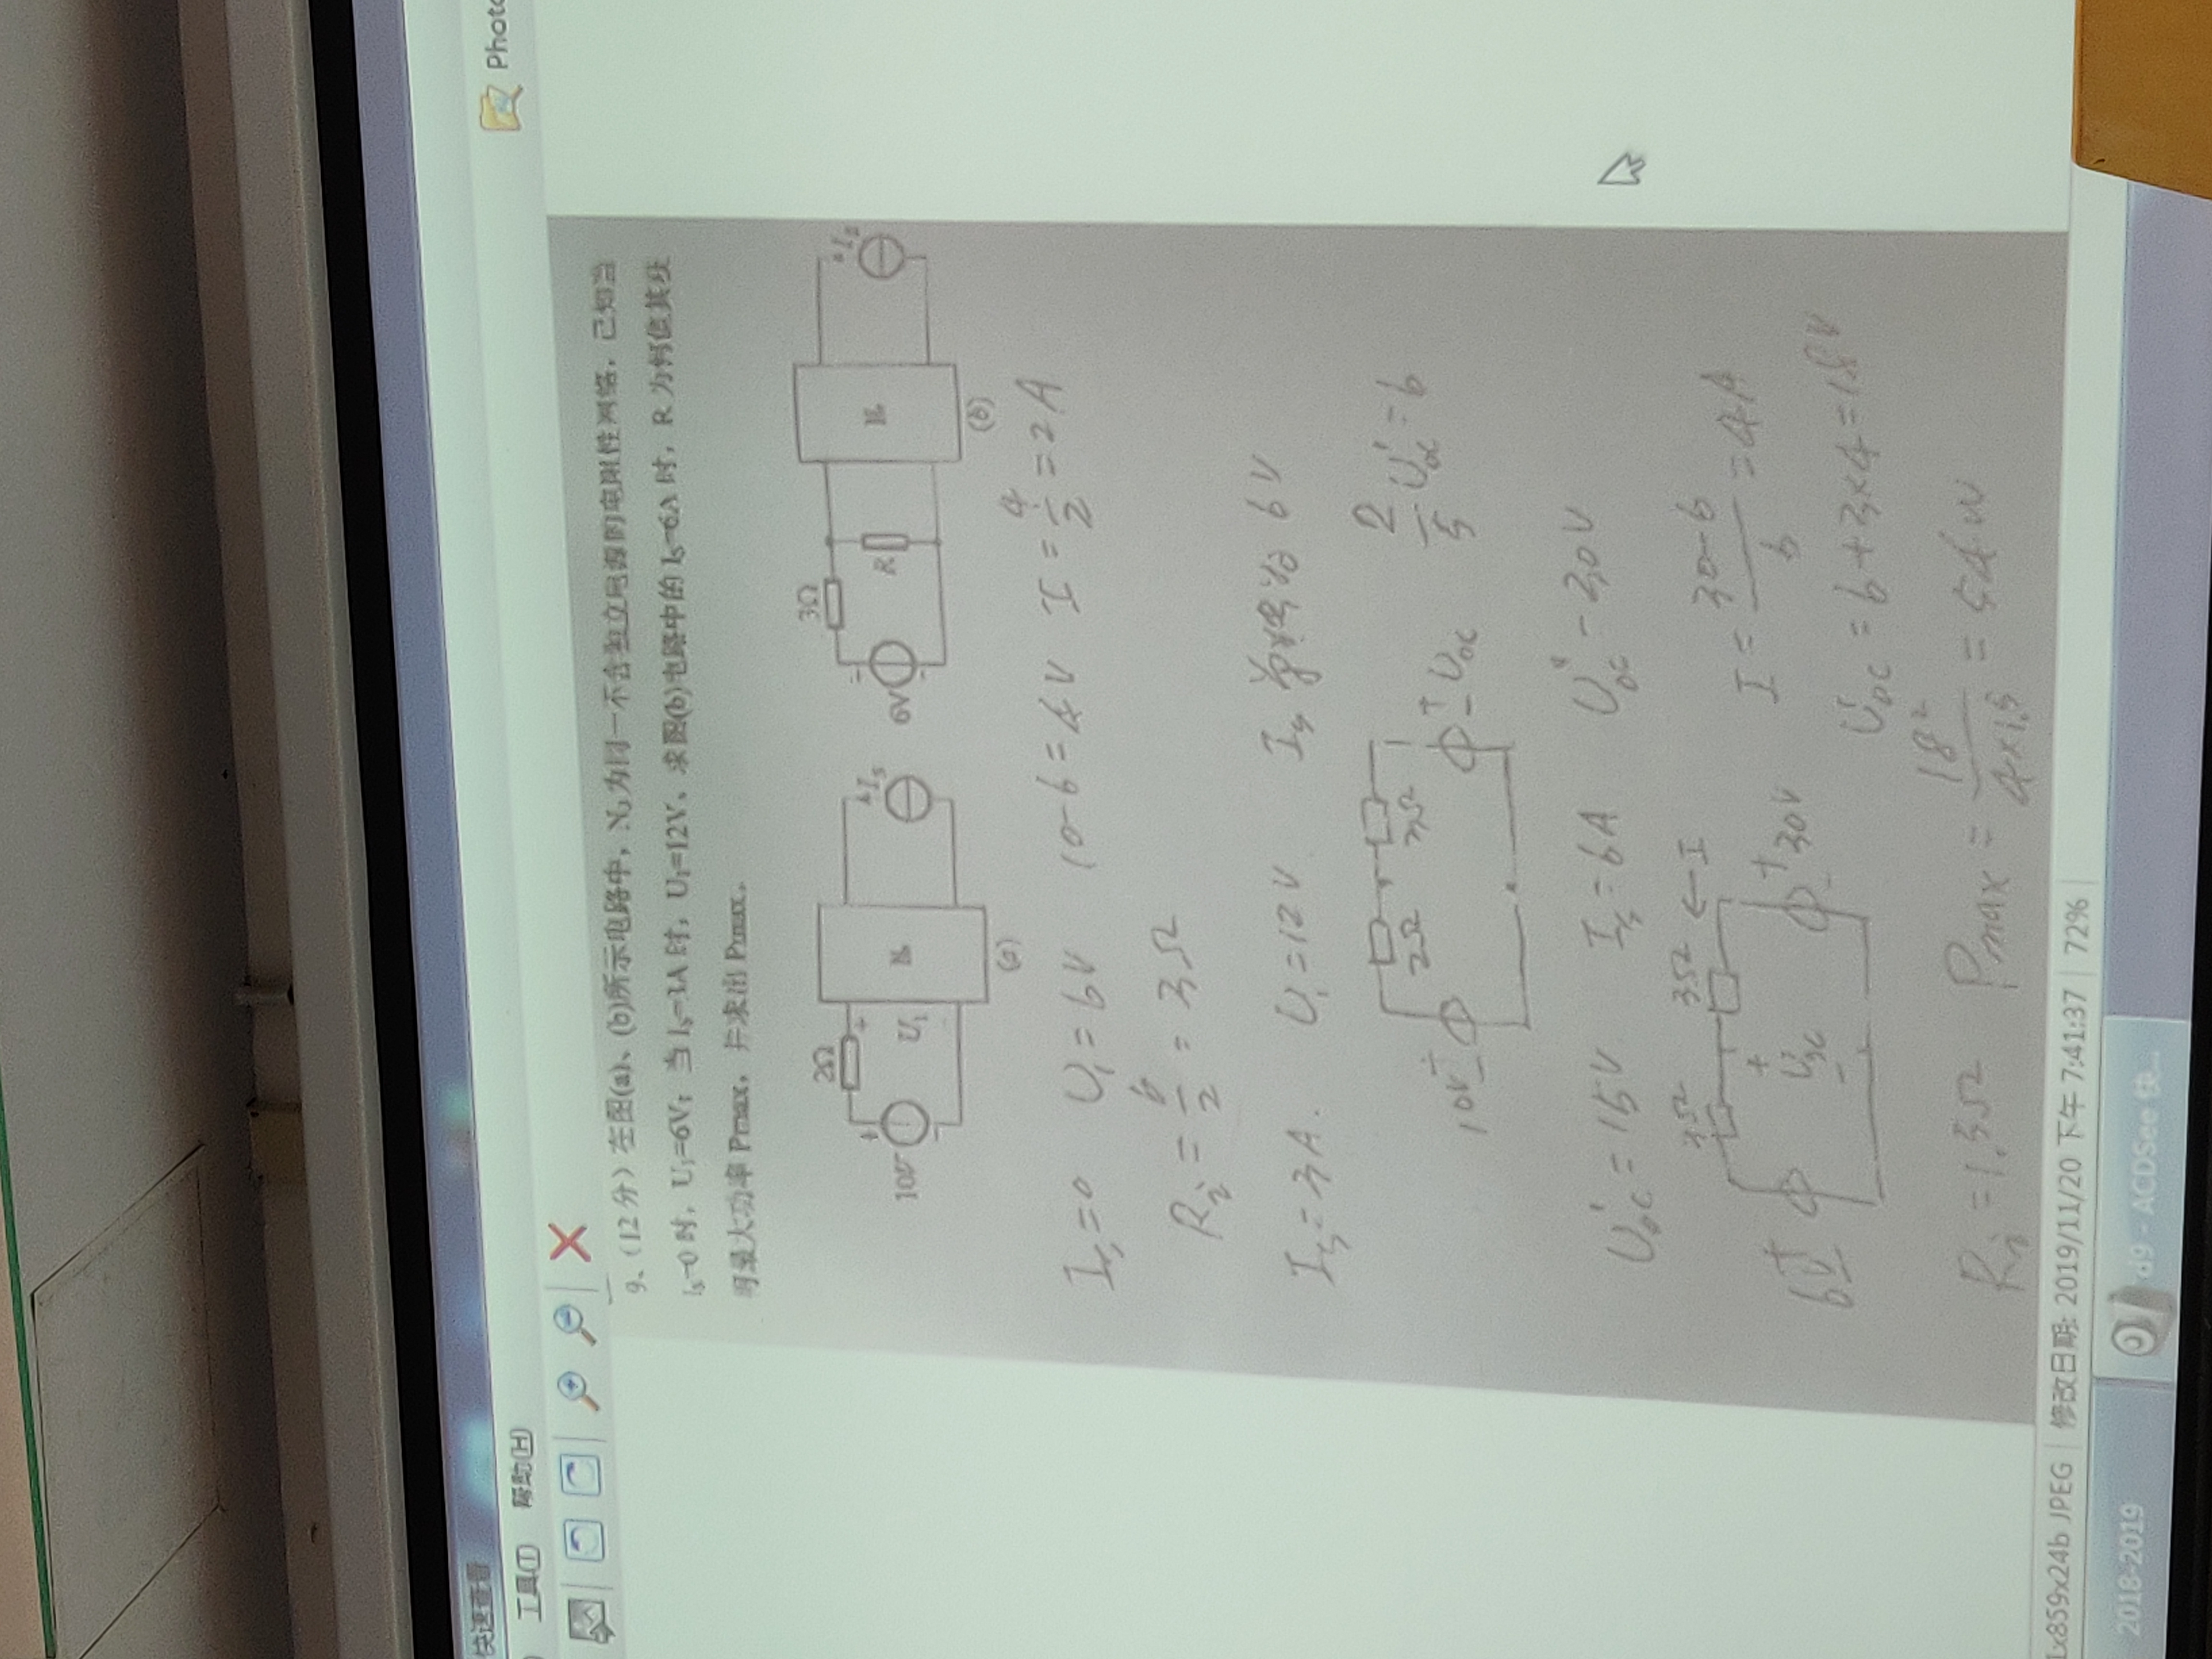 快速查看
工具(T) 帮助(H)
Photo
9、(12分)在图(a)、(b)所示电路中，N₀为同一不含独立电源的电阻性网络，已知当
Iₛ=0时，U₁=6V；当Iₛ=3A时，U₁=12V、求图(b)电路中的Iₛ=6A时，R为何值其获
得最大功率Pmax，并求出Pmax。
2Ω
+
10V
-
+
U₁
N₀
Iₛ
(a)
3Ω
6V
R
N₀
Iₛ
(b)
Iₛ=0 U₁=6V 10-6=4V I=4/2=2A
Rᵢ=6/2=3Ω
Iₛ=3A. U₁=12V Iₛ 单独 6V
2Ω 3Ω
10V + - + - Uoc
2/5 U'oc=6
U'oc=15V Iₛ=6A U''oc=30V
3Ω 3Ω ←I
6V + - + Uoc - + 30V -
I=(30-6)/6=4A
Uoc=6+3×4=18V
Rᵢ=1.5Ω Pmax=18²/(4×1.5)=54W
1x859x24b JPEG 修改日期: 2019/11/20 下午 7:41:37 72%
2018-2019
d9 - ACDSee 快...